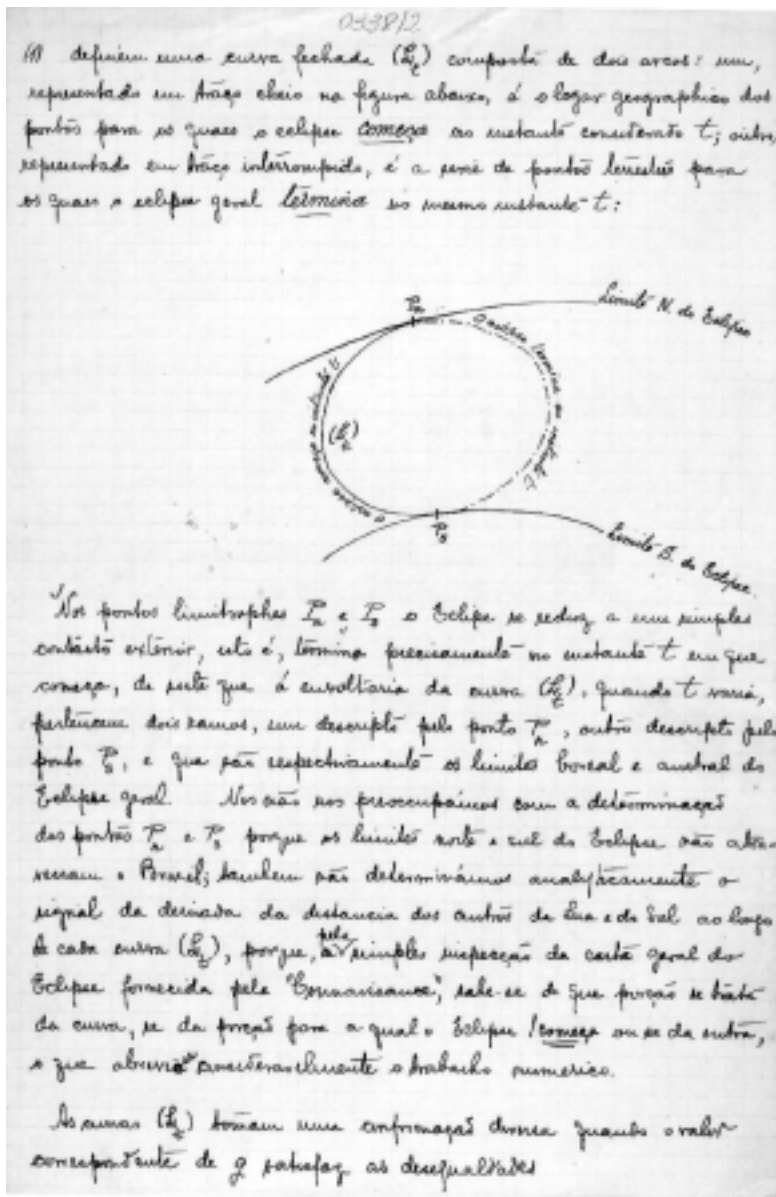 0338/2
(1) definem uma curva fechada (L_t) composta de dois arcos: um,
representado em traço cheio na figura abaixo, é o logar geographico dos
pontos para os quaes o eclipse começa ao instante considerado t; outro,
representado em traço interrompido, é a serie de pontos terrestres para
os quaes o eclipse geral termina no mesmo instante t:
P_n
Limite N. do Eclipse
o eclipse termina no instante t
o eclipse começa no instante t
(L_t)
P_s
Limite S. do Eclipse
Nos pontos limitrophes P_n e P_s o Eclipse se reduz a um simples
contacto exterior, isto é, termina precisamente no instante t em que
começa, de sorte que á envoltoria da curva (L_t), quando t varia,
pertencem dois ramos, um descripto pelo ponto P_n, outro descripto pelo
ponto P_s, e que são respectivamente os limites boreal e austral do
Eclipse geral. Nós não nos preoccupámos com a determinação
dos pontos P_n e P_s porque os limites norte e sul do Eclipse não atra-
vessam o Brasil; tambem não determinámos analyticamente o
signal da derivada da distancia dos centros da Lua e do Sol ao longo
de cada curva (L_t), porque, pela simples inspecção da carta geral do
Eclipse fornecida pela "Connaissance", sabe-se de que porção se trata
da curva, se da porção para a qual o Eclipse começa ou se da outra,
o que abrevia consideravelmente o trabalho numerico.
As curvas (L_t) tomam uma conformação diversa quando o valor
correspondente de g satisfaz as desegualdades